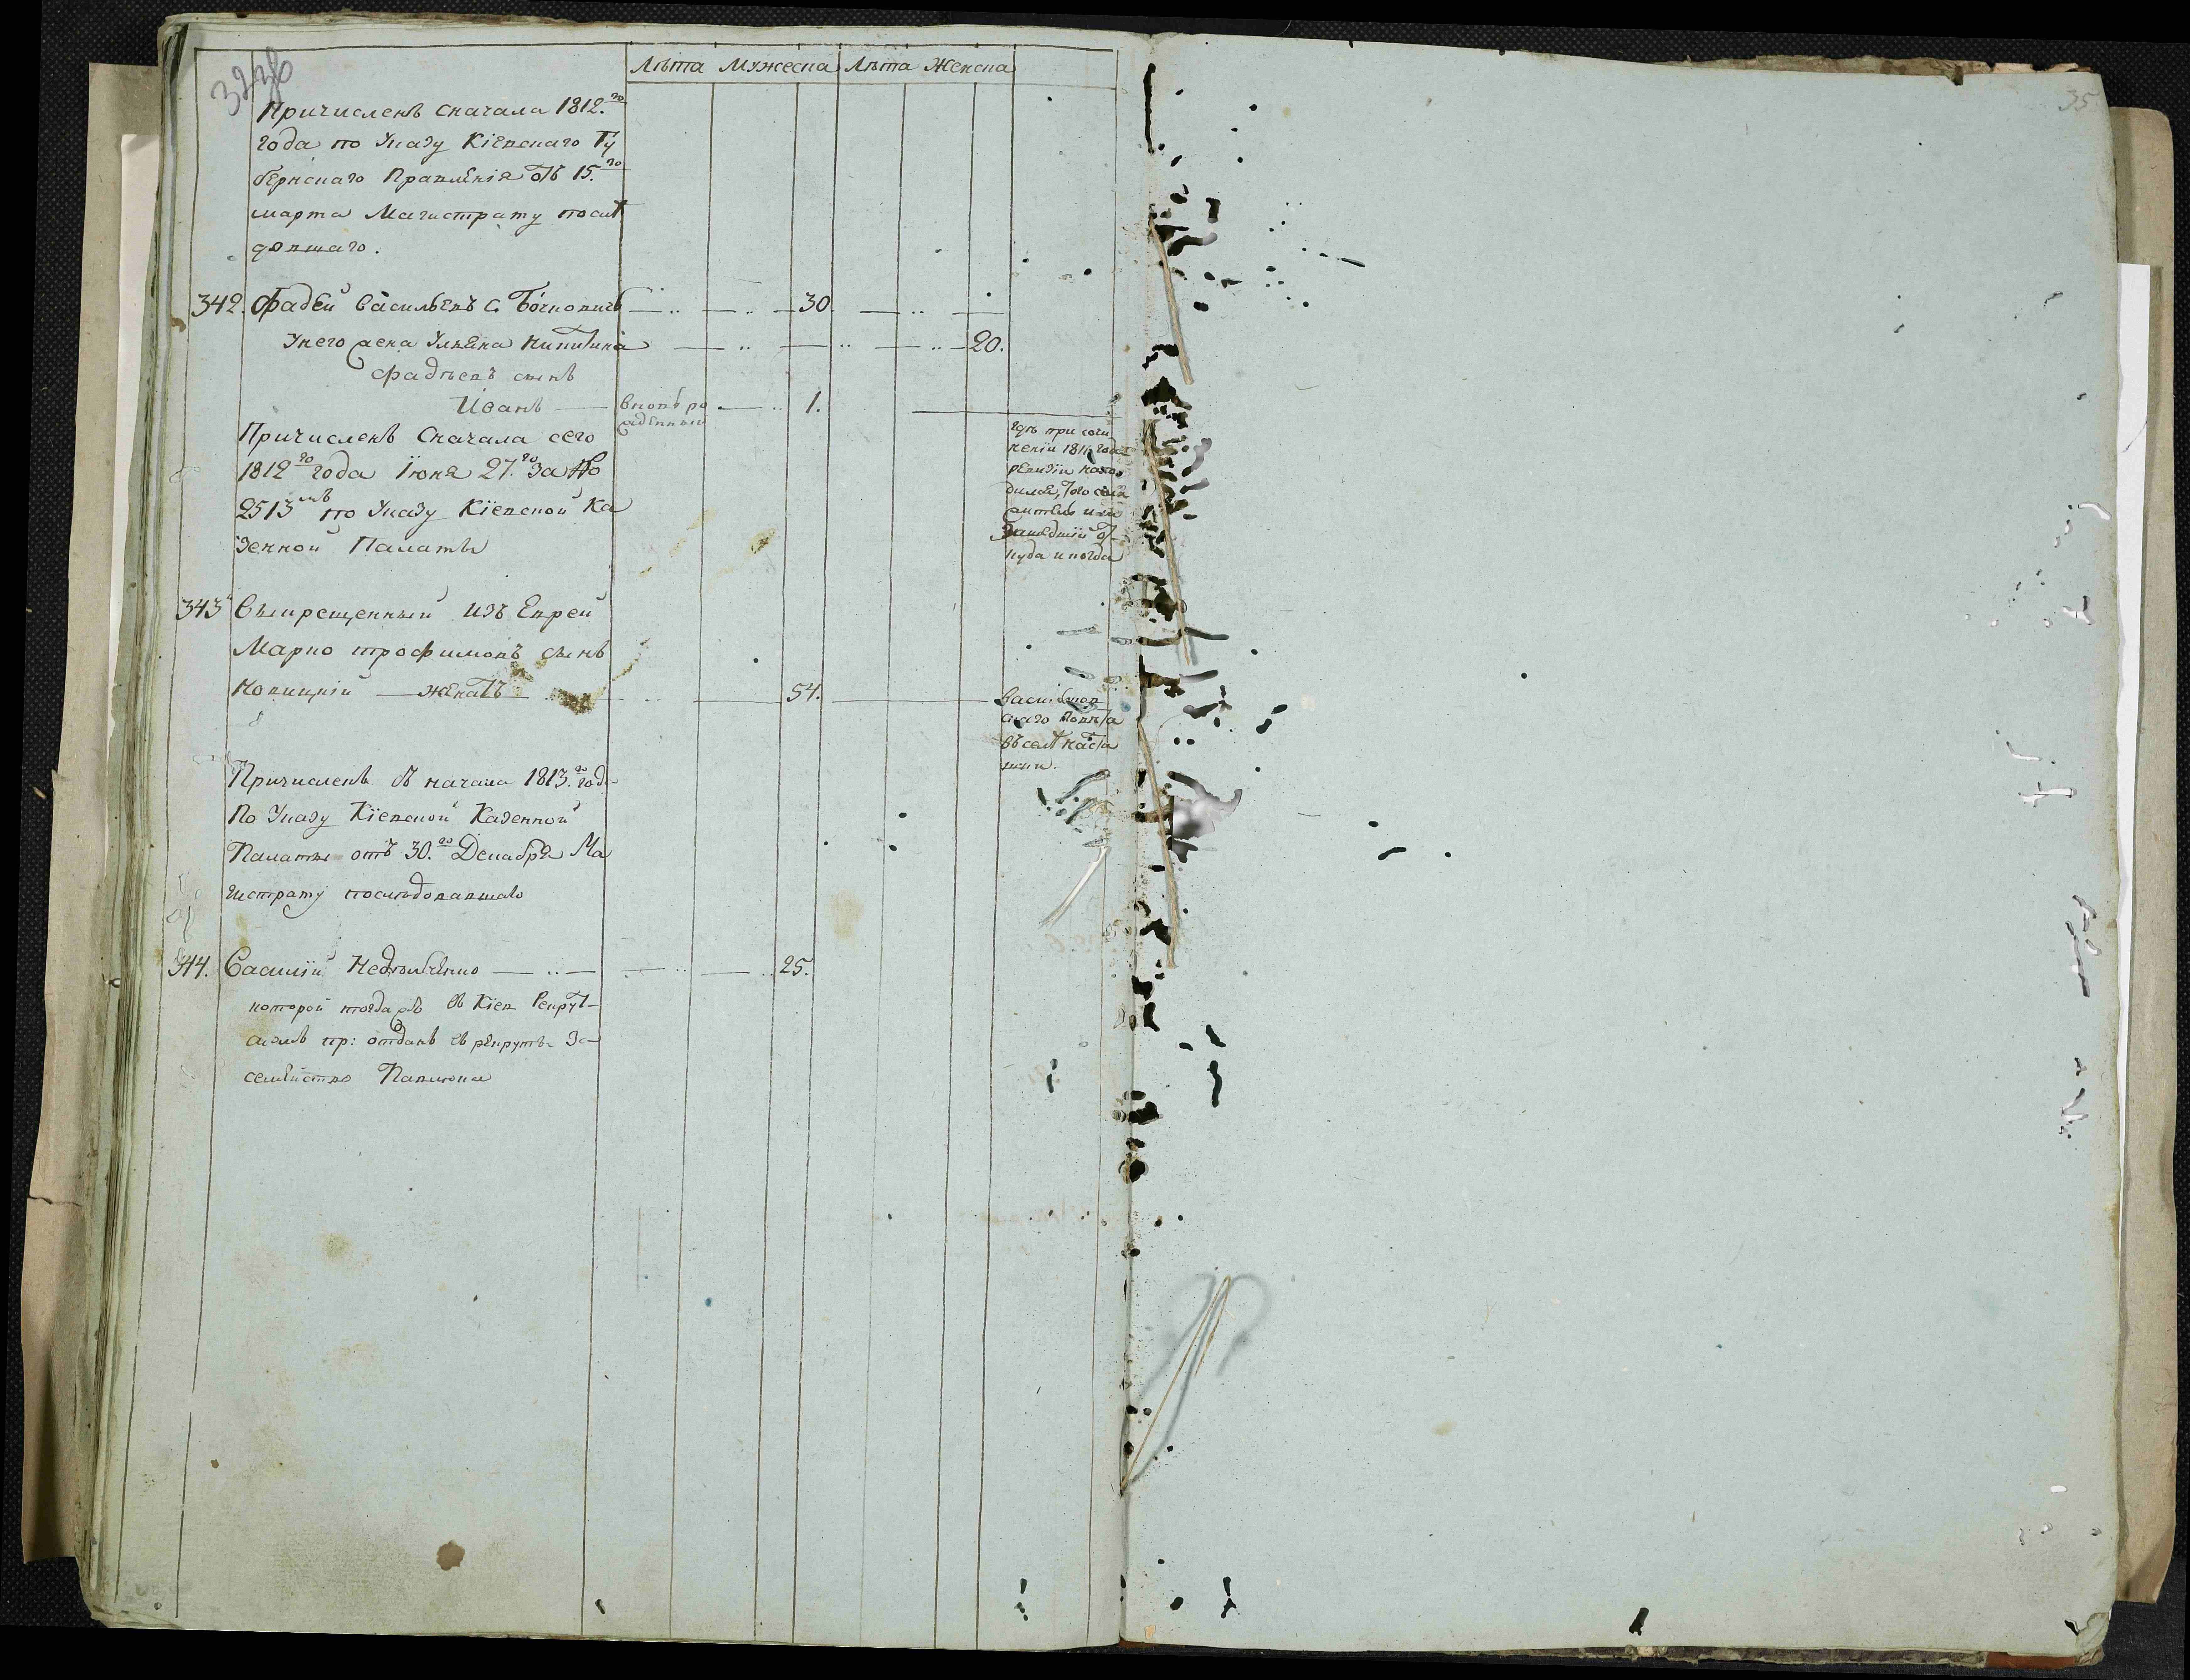 Лѣта Мужеска Лѣта Женска
35
Причисленъ сначала 1812.го
года по Указу Кіевскаго Гу
бернскаго Правленія отъ 15.го
марта Магистрату послѣ
довшаго.
342. Фадей Васильевъ с. Бочковичъ 30.
Унего жена Ульяна Никитина 20.
Фадѣевъ сынъ
Иванъ вновь ро 1.
жденный
Причисленъ Сначала сего
1812го года Іюня 27.го за №
2513мъ по Указу Кіевской Ка
зенной Палаты
гдѣ при сочи
неніи 1811 года
ревизіи нахо
дился, того
куда и когда
343 Выкрещенный изъ Еврей
Марко трофимовъ сынъ
Новицкій женатъ 54.
Васильков
скаго Повѣта
въ селѣ
Причисленъ съ начала 1813.го года
По Указу Кіевской Казенной
Палаты отъ 30.го Декабря Ма
гистрату послѣдовавшаго
344. Василій 25.
которой тогда жъ въ Кіев Рекрут
скомъ пр: отданъ въ рекруты За
семейство Павлюка